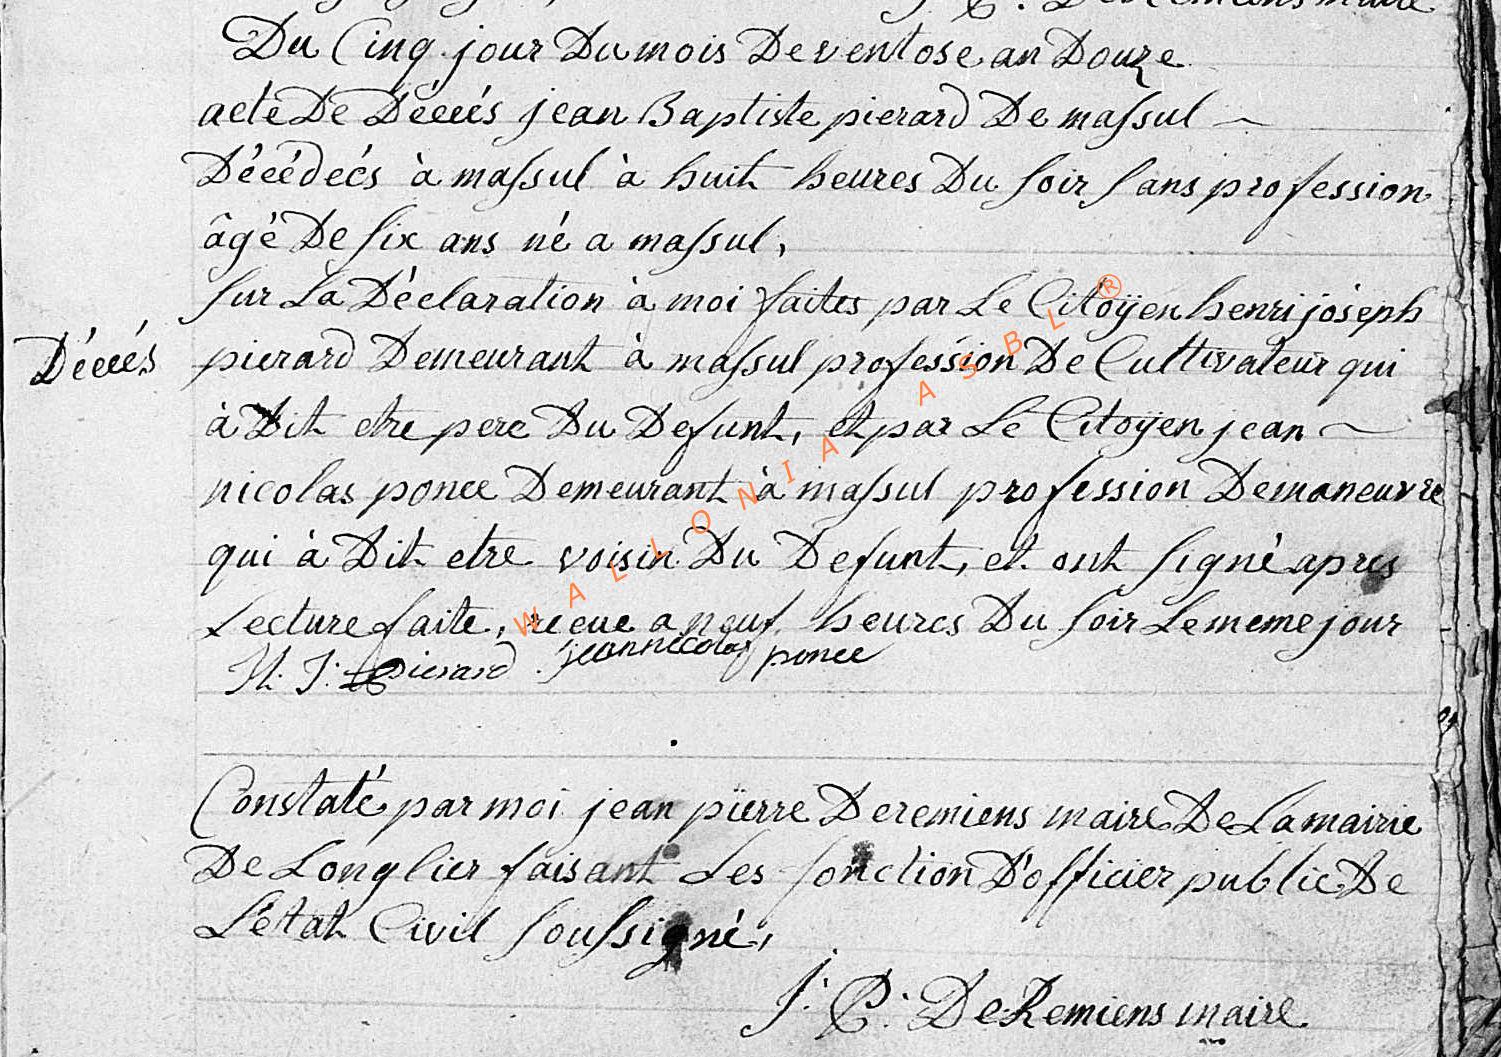 J. P. DeRemiens maire
Du Cinq jour Du mois De ventose an Douze
acte De Décés jean Baptiste pierard De massul
Décédeés à massul à huit heures Du soir sans profession
âgé De six ans né a massul,
sur La Déclaration à moi faites par Le Citoÿen henri jóseph
Décés
pierard Demeurant à massul profession De Cultivateur qui
à Dit etre pere Du Defunt, et par Le Citoÿen jean
nicolas ponce Demeurant à massul profession Demaneuvre
qui à Dit etre voisin Du Defunt, et ont signé apres
Lecture faite, recue a neuf heures Du soir Le meme jour
H. J. pierard jeannicolas ponce
Constaté par moi jean pïerre Deremiens maire De La mairie
De Longlier faisant Les fonction D'officier public De
L'état Civil soussigné,
J. P. DeRemiens maire
WALLONIA ASBL®